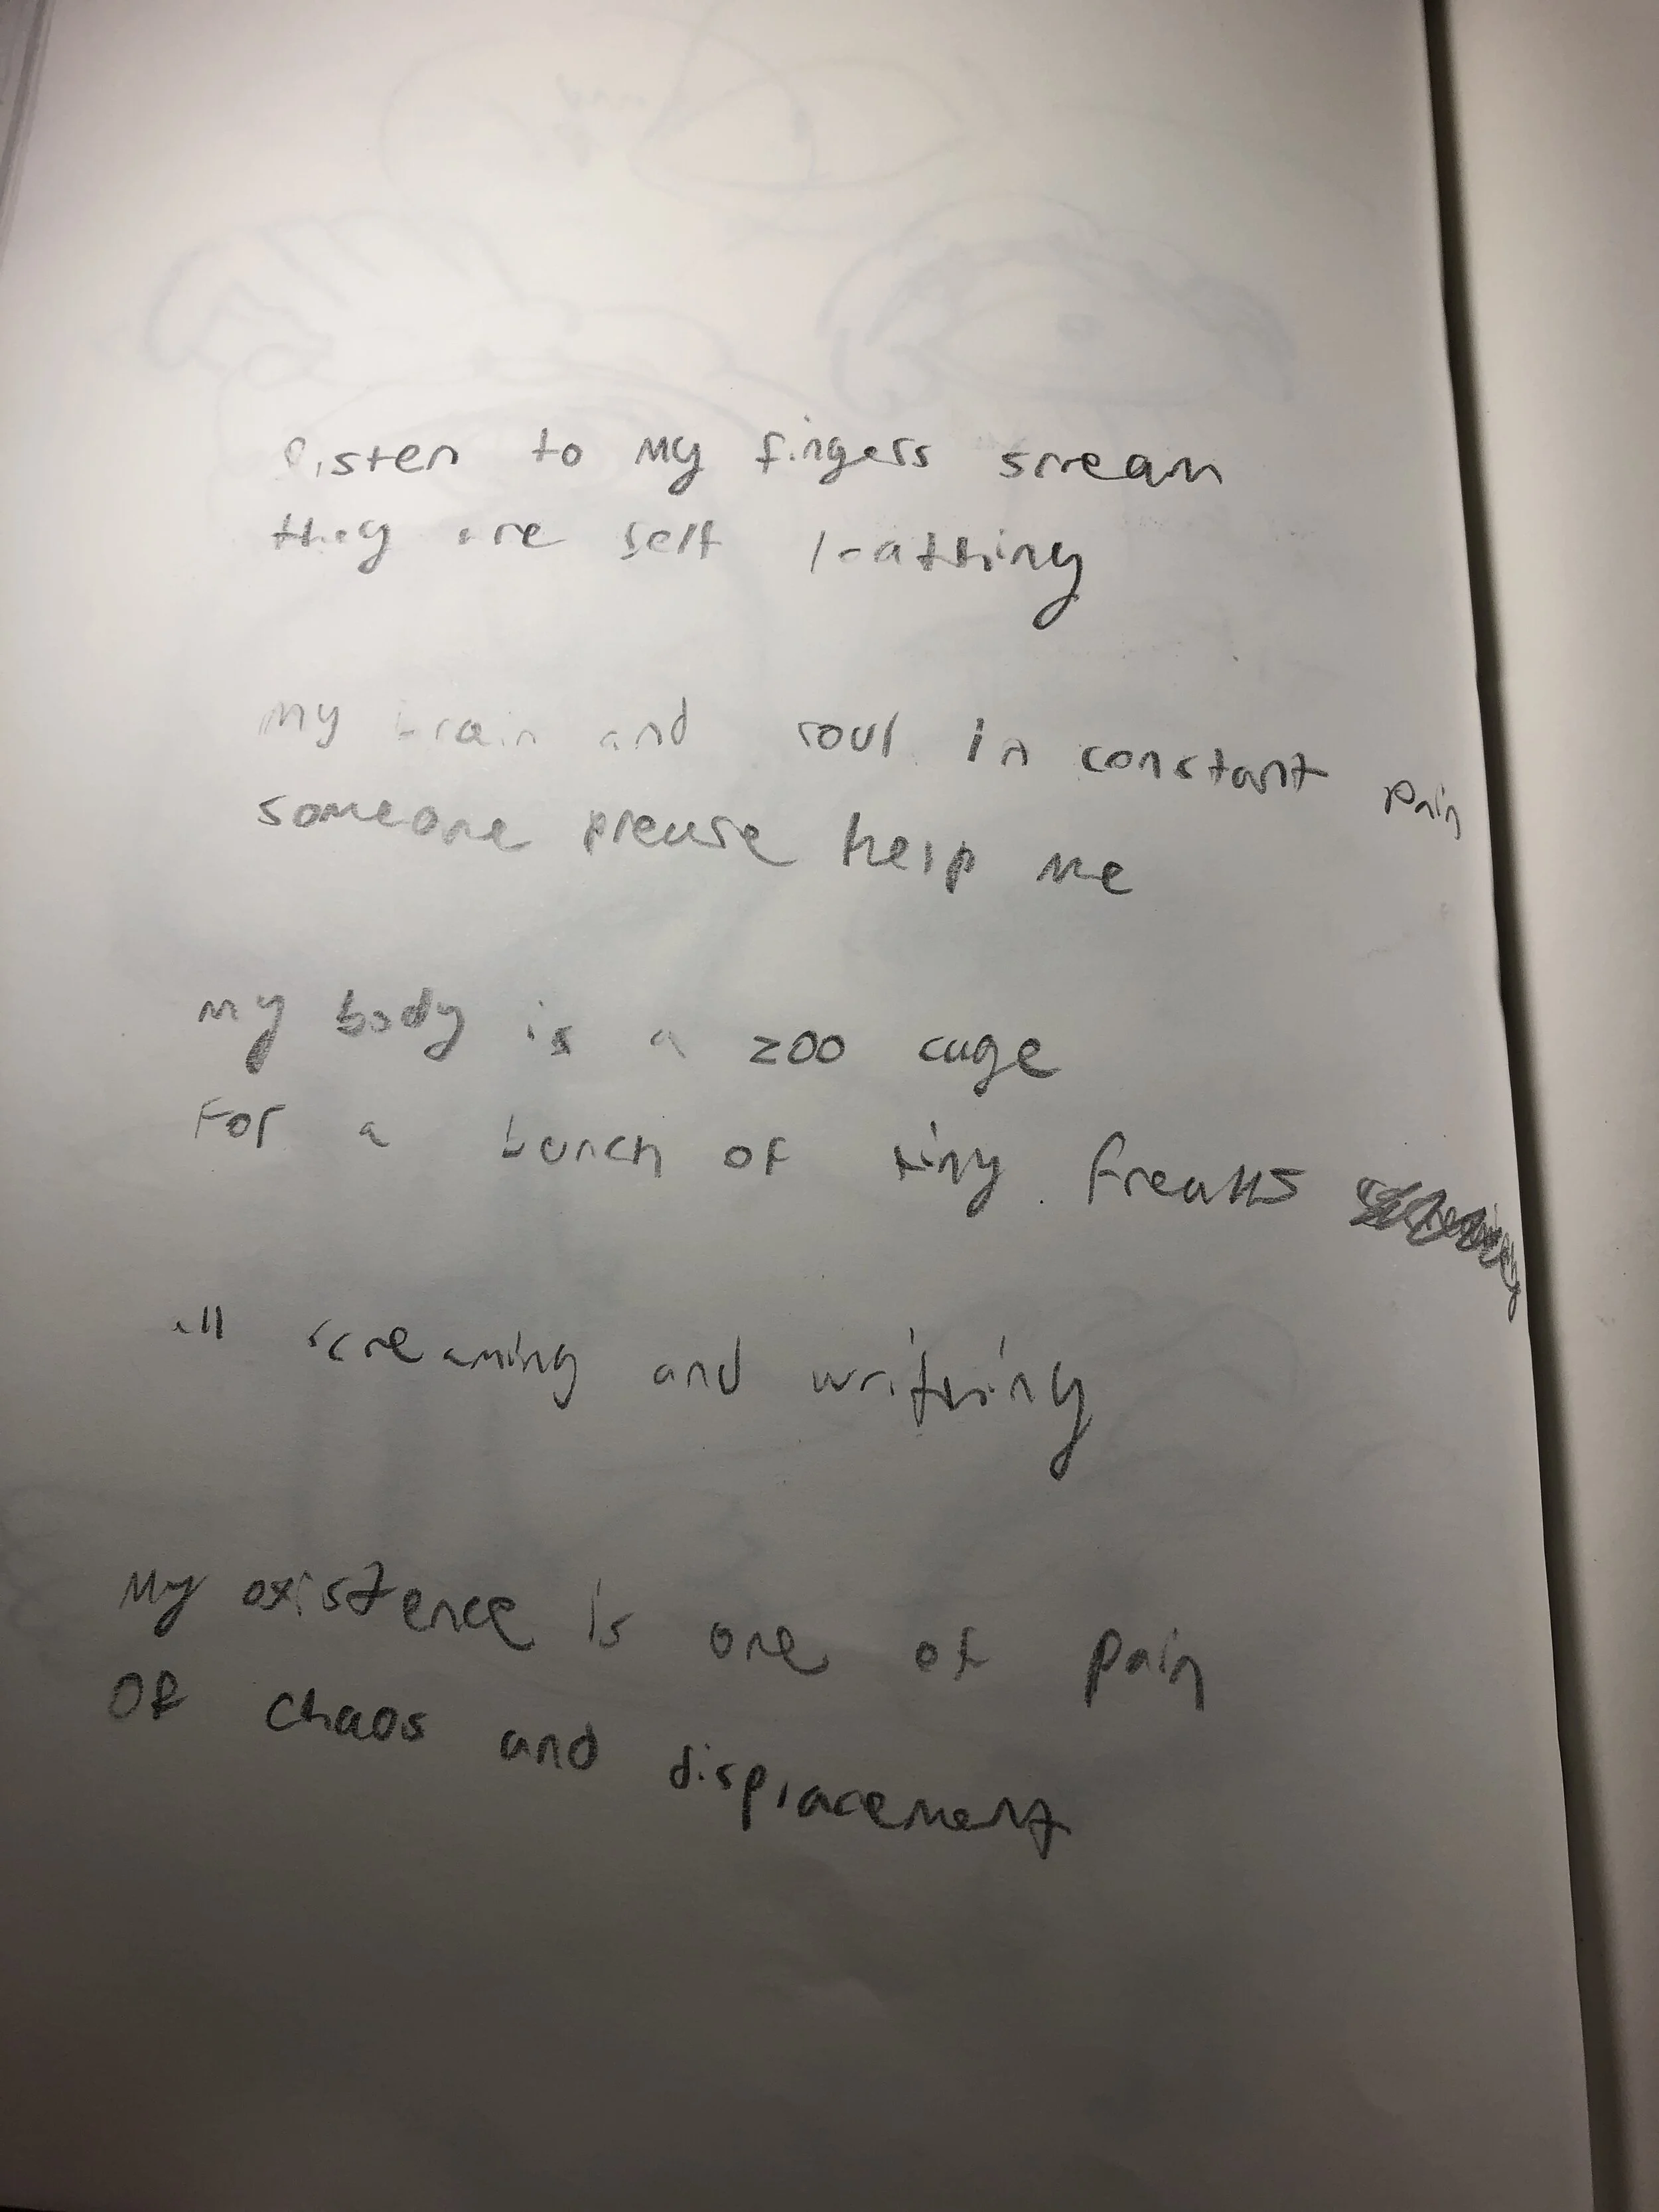 listen to my fingers scream
they are self loathing
my brain and soul in constant pain
someone please help me
my body is a zoo cage
For a bunch of tiny freaks
all screaming and writhing
My existence is one of pain
OF chaos and displacement